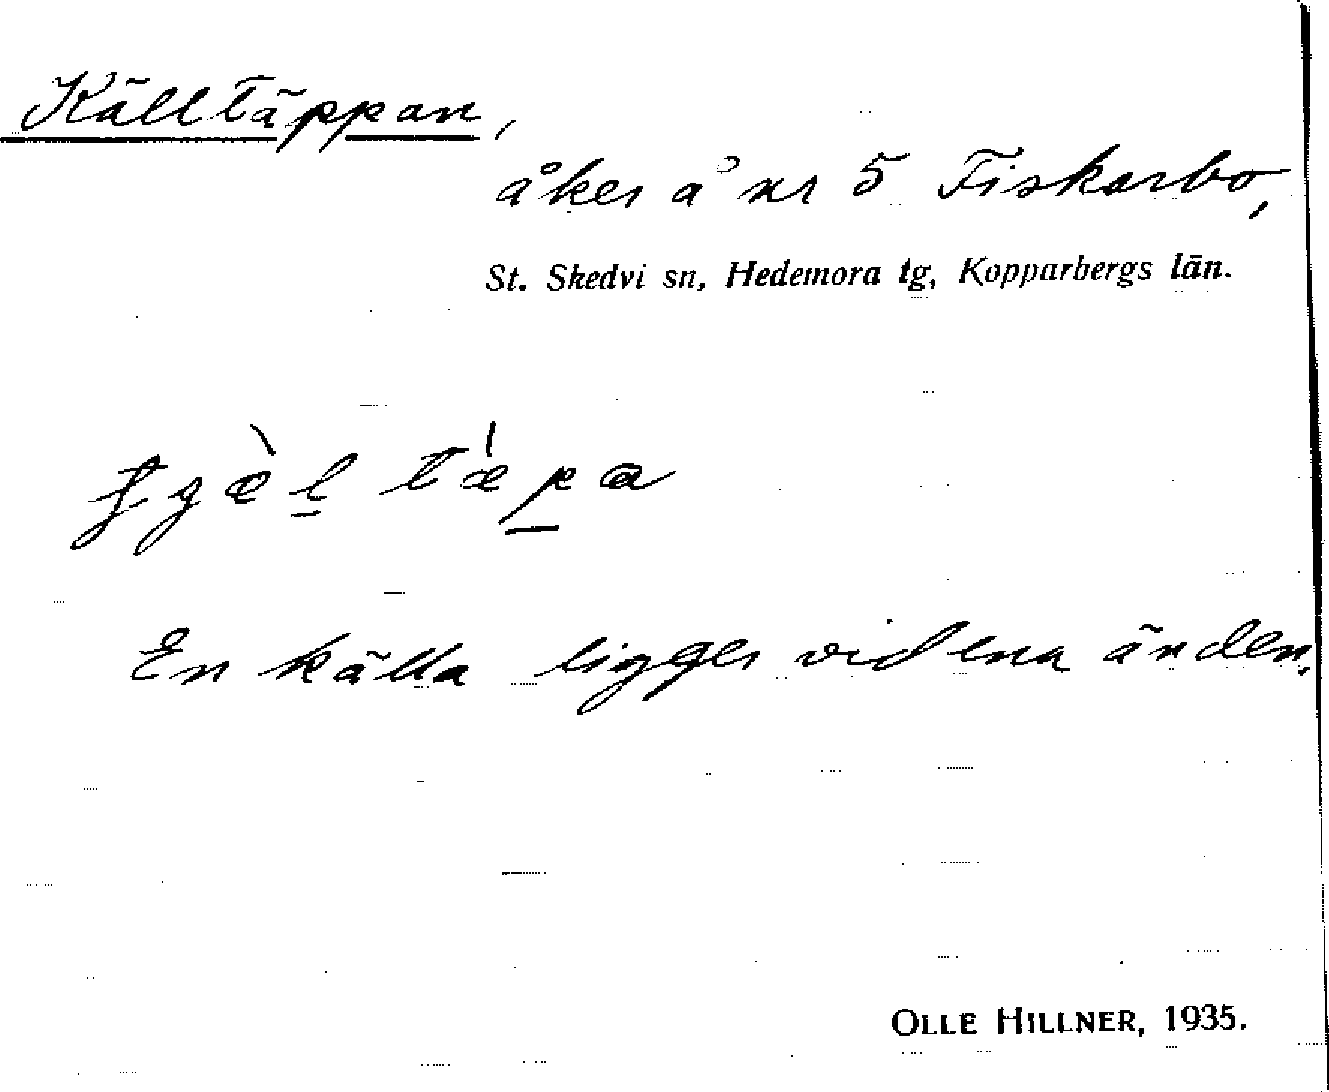 Källtäppan,
åker å nr 5 Fiskarbo,
St. Skedvi sn, Hedemora tg, Kopparbergs län.
En källa ligger vid ena änden.
OLLE HILLNER, 1935.